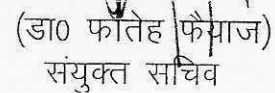 (डा0 फातेह फैयाज)
संयुक्त सचिव